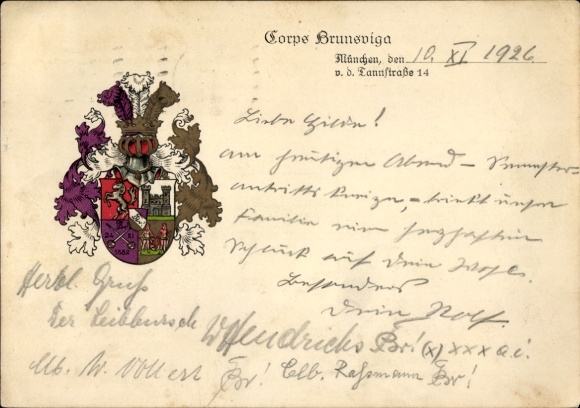 Corps Brunsviga
München, den 10. XI. 1926.
v. d. Tannstraße 14
Liebe Hilde!
Am heutigen Abend – Semester-
antritts Kneipe, – trinkt unsere
Familie einen herzhaften
Schluck auf Dein Wohl.
Besonders
Dein Rolf.
Herzl. Gruß
Der Leibbursch WHendrichs Br! (x) xxx a.i.
W. Vollert Br! Clb. Raßmann Br!